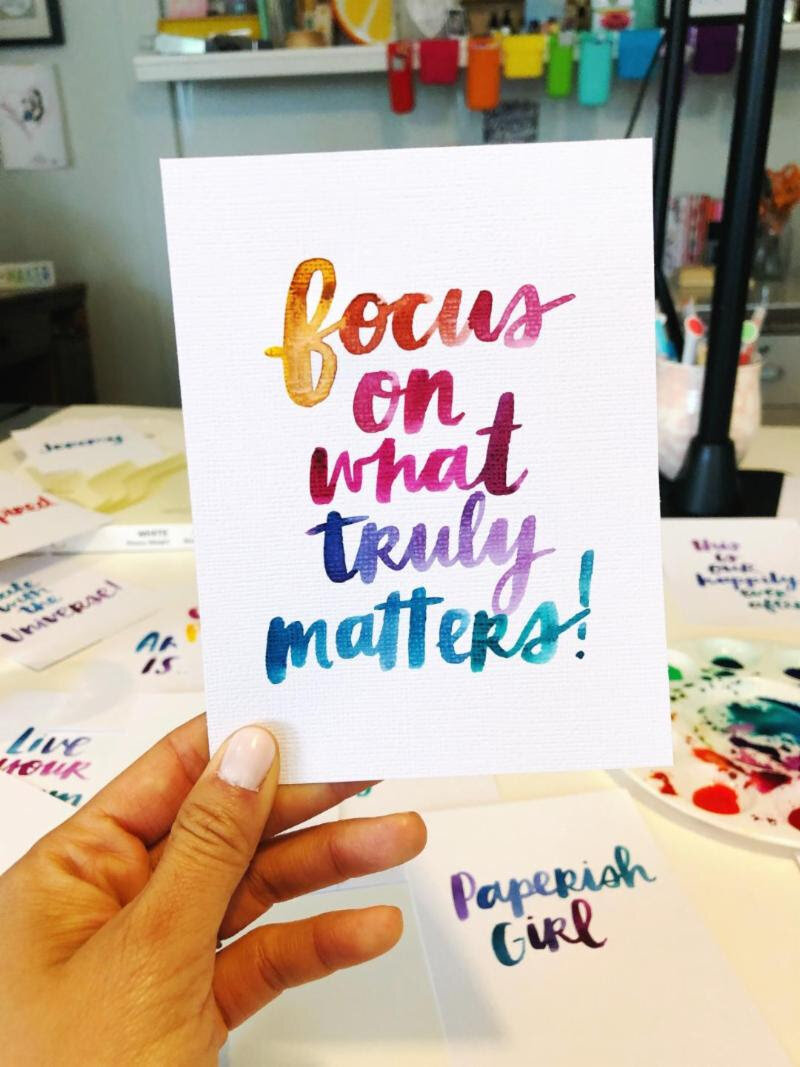 focus
on
what
truly
matters!
WHITE
the
Universe!
Live
your
this
is
our
happily
ever
after
Paperish
Girl